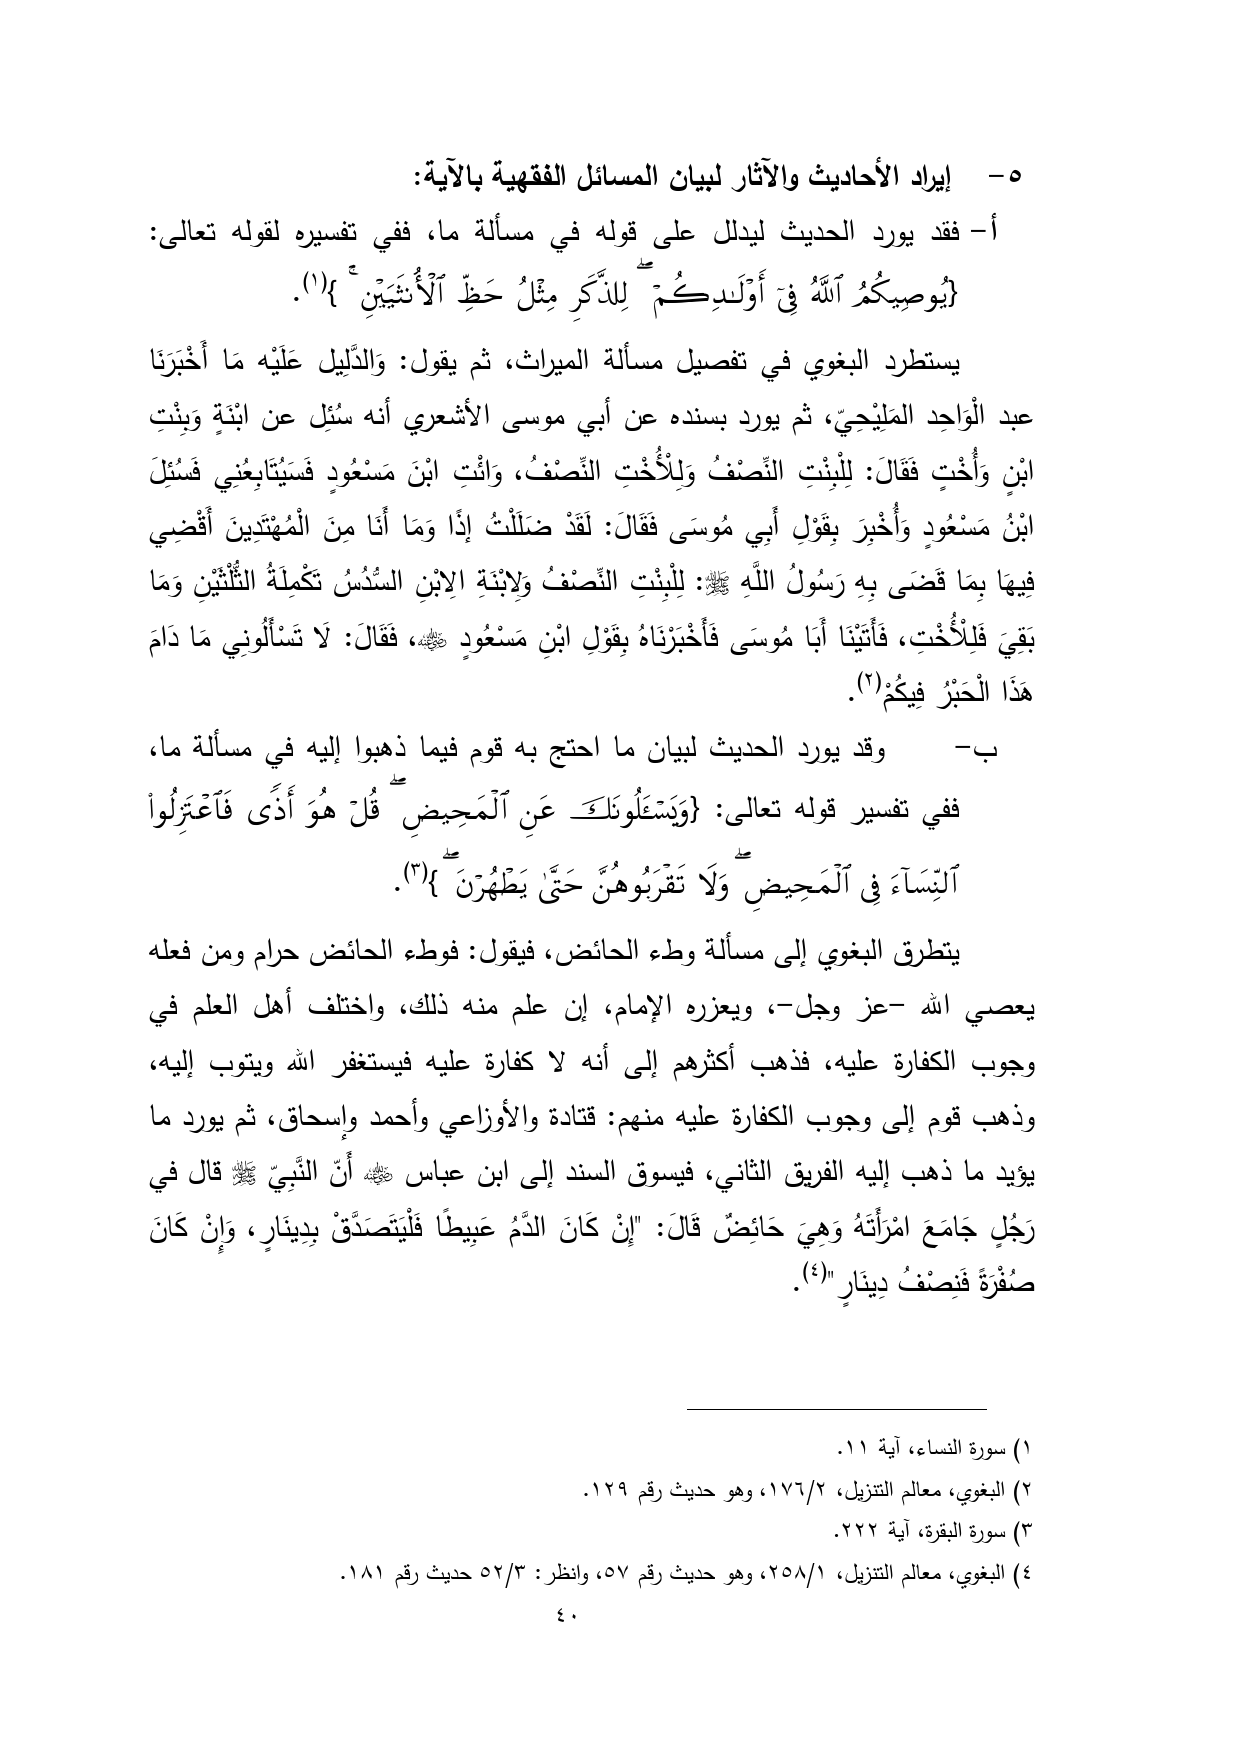 ٥- إيراد الأحاديث والآثار لبيان المسائل الفقهية بالآية:
أ- فقد يورد الحديث ليدلل على قوله في مسألة ما، ففي تفسيره لقوله تعالى:
{يُوصِيكُمُ ٱللَّهُ فِىٓ أَوْلَـٰدِكُمْ ۖ لِلذَّكَرِ مِثْلُ حَظِّ ٱلْأُنثَيَيْنِ ۚ }(١).
يستطرد البغوي في تفصيل مسألة الميراث، ثم يقول: وَالدَّلِيل عَلَيْه مَا أَخْبَرَنَا
عبد الْوَاحِد المَلِيْحِيّ، ثم يورد بسنده عن أبي موسى الأشعري أنه سُئِل عن ابْنَةٍ وَبِنْتِ
ابْنٍ وَأُخْتٍ فَقَالَ: لِلْبِنْتِ النِّصْفُ وَلِلْأُخْتِ النِّصْفُ، وَائْتِ ابْنَ مَسْعُودٍ فَسَيُتَابِعُنِي فَسُئِلَ
ابْنُ مَسْعُودٍ وَأُخْبِرَ بِقَوْلِ أَبِي مُوسَى فَقَالَ: لَقَدْ ضَلَلْتُ إِذًا وَمَا أَنَا مِنَ الْمُهْتَدِينَ أَقْضِي
فِيهَا بِمَا قَضَى بِهِ رَسُولُ اللَّهِ ﷺ: لِلْبِنْتِ النِّصْفُ وَلِابْنَةِ الِابْنِ السُّدُسُ تَكْمِلَةُ الثُّلُثَيْنِ وَمَا
بَقِيَ فَلِلْأُخْتِ، فَأَتَيْنَا أَبَا مُوسَى فَأَخْبَرْنَاهُ بِقَوْلِ ابْنِ مَسْعُودٍ ﵁، فَقَالَ: لَا تَسْأَلُونِي مَا دَامَ
هَذَا الْحَبْرُ فِيكُمْ(٢).
ب- وقد يورد الحديث لبيان ما احتج به قوم فيما ذهبوا إليه في مسألة ما،
ففي تفسير قوله تعالى: {وَيَسْـَٔلُونَكَ عَنِ ٱلْمَحِيضِ ۖ قُلْ هُوَ أَذًى فَٱعْتَزِلُوا۟
ٱلنِّسَآءَ فِى ٱلْمَحِيضِ ۖ وَلَا تَقْرَبُوهُنَّ حَتَّىٰ يَطْهُرْنَ ۖ }(٣).
يتطرق البغوي إلى مسألة وطء الحائض، فيقول: فوطء الحائض حرام ومن فعله
يعصي الله -عز وجل-، ويعزره الإمام، إن علم منه ذلك، واختلف أهل العلم في
وجوب الكفارة عليه، فذهب أكثرهم إلى أنه لا كفارة عليه فيستغفر الله ويتوب إليه،
وذهب قوم إلى وجوب الكفارة عليه منهم: قتادة والأوزاعي وأحمد وإسحاق، ثم يورد ما
يؤيد ما ذهب إليه الفريق الثاني، فيسوق السند إلى ابن عباس ﵁ أَنّ النَّبِيّ ﷺ قال في
رَجُلٍ جَامَعَ امْرَأَتَهُ وَهِيَ حَائِضٌ قَالَ: "إِنْ كَانَ الدَّمُ عَبِيطًا فَلْيَتَصَدَّقْ بِدِينَارٍ، وَإِنْ كَانَ
صُفْرَةً فَنِصْفُ دِينَارٍ"(٤).
١) سورة النساء، آية ١١.
٢) البغوي، معالم التنزيل، ١٧٦/٢، وهو حديث رقم ١٢٩.
٣) سورة البقرة، آية ٢٢٢.
٤) البغوي، معالم التنزيل، ٢٥٨/١، وهو حديث رقم ٥٧، وانظر: ٥٢/٣ حديث رقم ١٨١.
٤٠